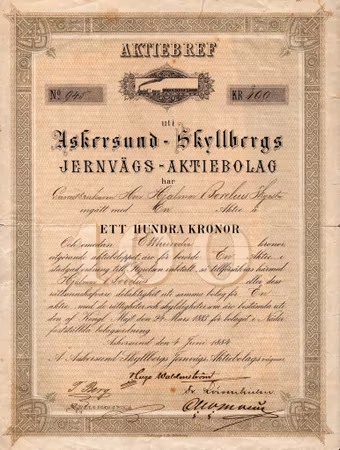 AKTIEBREF
No. 945 KR 100
uti
Askersund-Skyllbergs
JERNVÄGS-AKTIEBOLAG
har
Herr Hjalmar Borelius
ingått med En Aktie à
ETT HUNDRA KRONOR
100
Och emedan Ett hundra kronor
utgörande aktiebeloppet, äro för berörde En Aktie i
till fullo inbetalt, så tillförsäkras härmed
Hjalmar Borelius eller dess
rättsinnehafvare delaktighet uti samma bolag för En
aktie, med de rättigheter och skyldigheter som äro bestämda uti
den af Kongl. Maj:t den 24 Mars 1883 för bolaget i Nåder
fastställda bolagsordning.
Askersund den 4 Juni 1884
Å Askersund-Skyllbergs Jernvägs-Aktiebolags vägnar
Hugo Waldenström
T. Berg